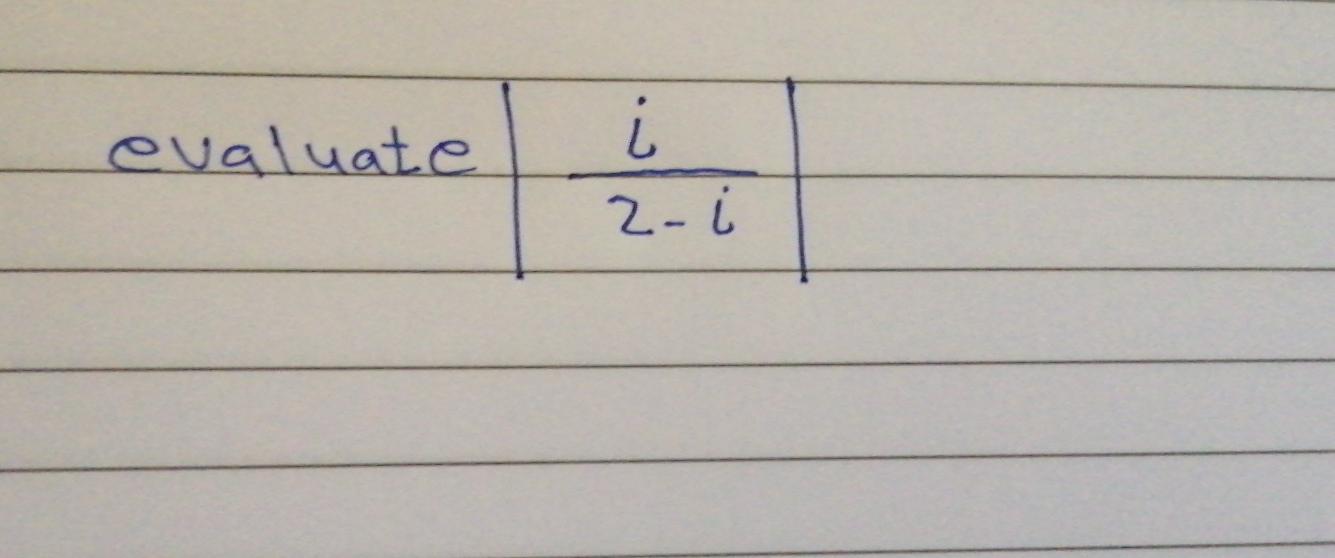 evaluate | i / 2 - i |